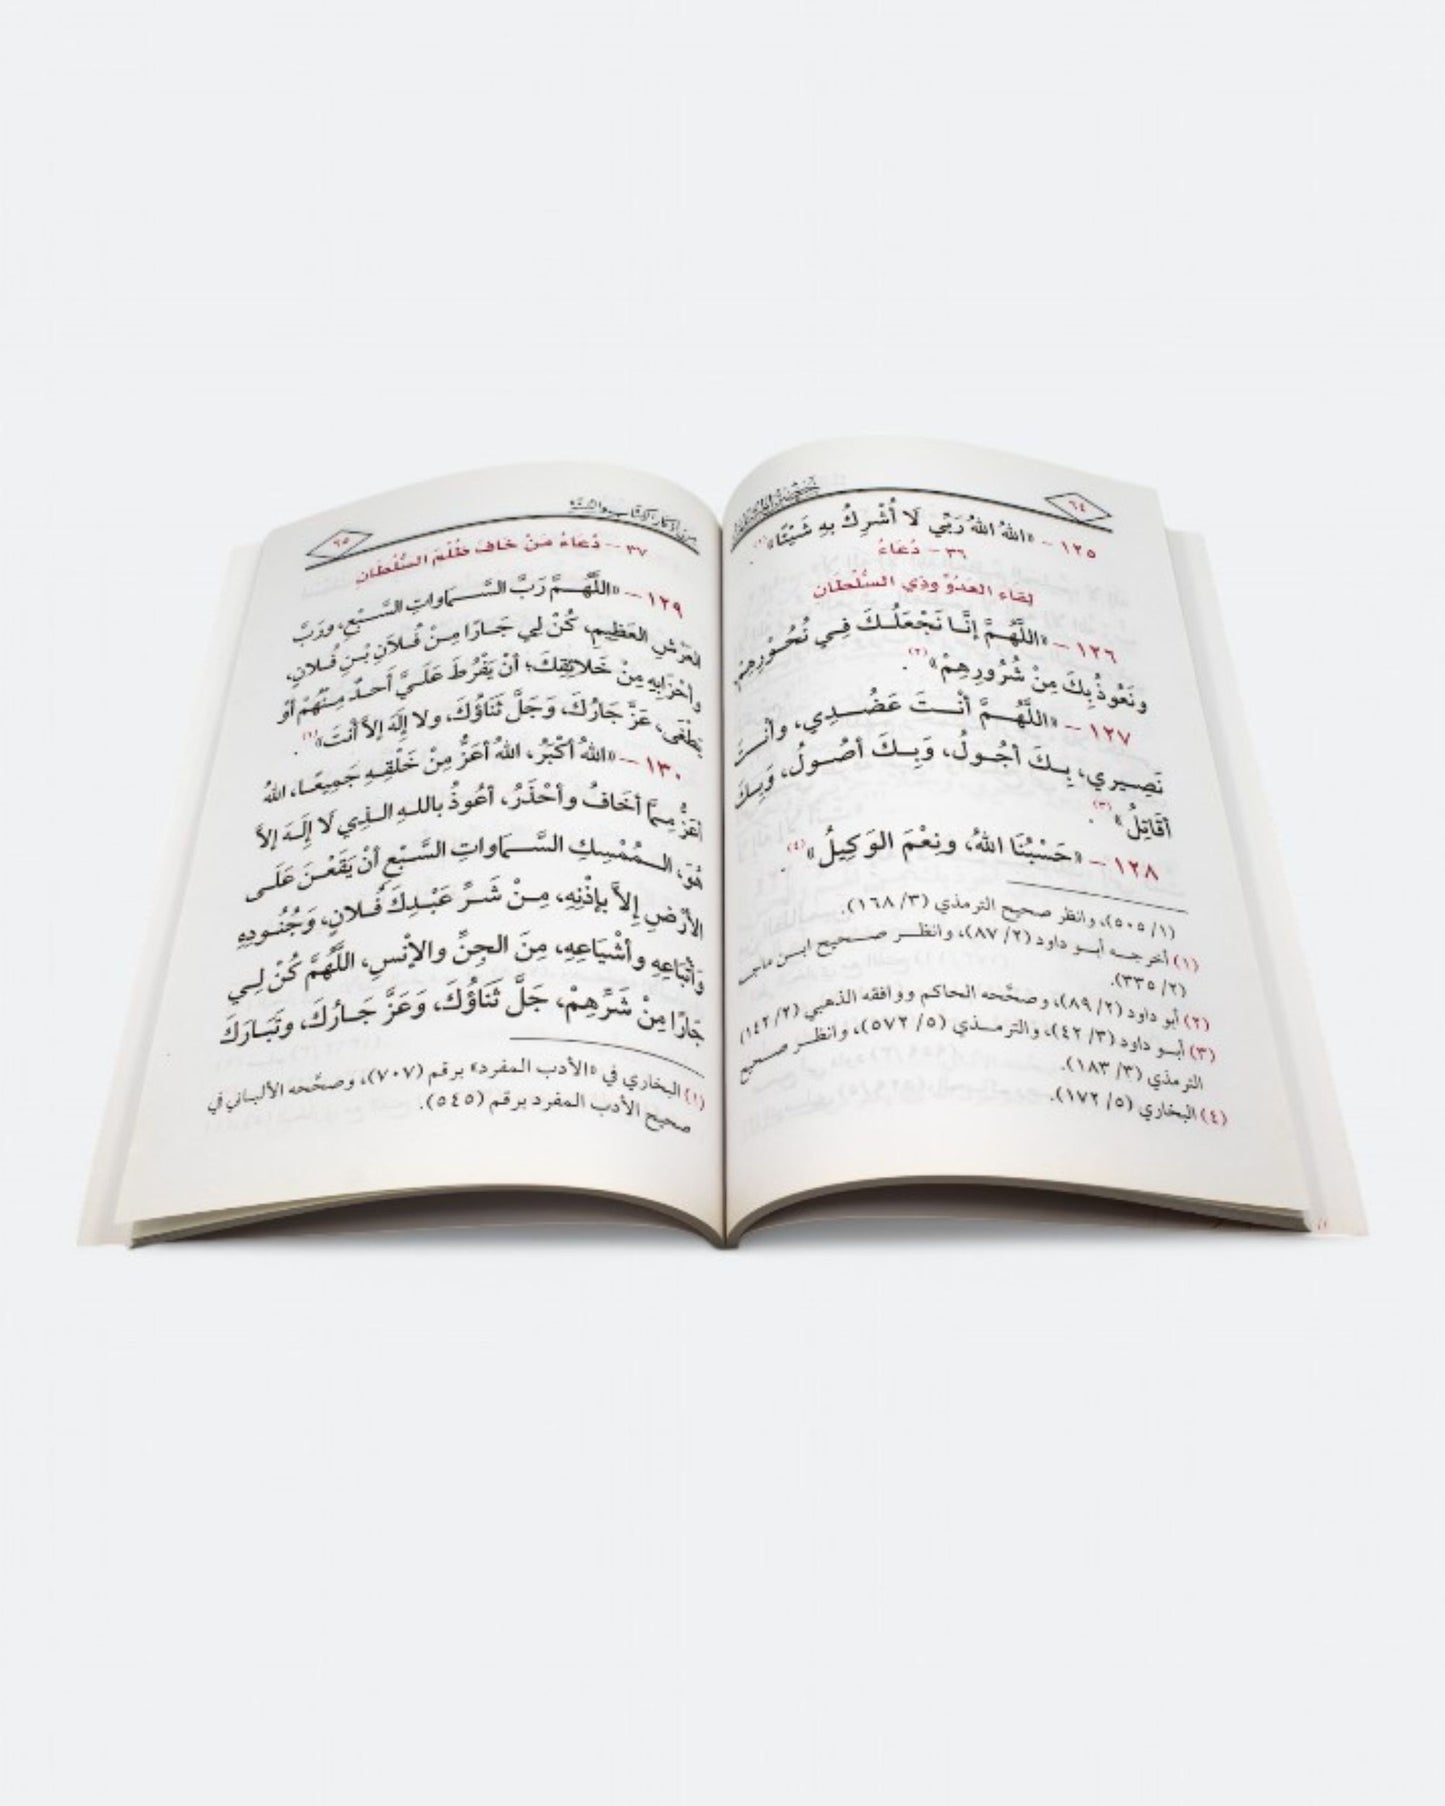 ٦٤
١٢٥ – «اللهُ اللهُ رَبِّي لَا أُشْرِكُ بِهِ شَيْئًا»(١).
٣٦ – دُعَاءُ
لِقَاءِ العَدُوِّ وَذِي السُّلْطَانِ
١٢٦ – «اللَّهُمَّ إِنَّا نَجْعَلُكَ فِي نُحُورِهِمْ
ونَعُوذُ بِكَ مِنْ شُرُورِهِمْ»(٢).
١٢٧ – «اللَّهُمَّ أنْتَ عَضُدِي، وأنْتَ
نَصِيرِي، بِكَ أجُولُ، وَبِكَ أصُولُ، وَبِكَ
أُقَاتِلُ»(٣).
١٢٨ – «حَسْبُنَا اللهُ، ونِعْمَ الوَكِيلُ»(٤).
(١/ ٥٠٥)، وانظر صحيح الترمذي (٣/ ١٦٨).
(١) أخرجه أبو داود (٢/ ٨٧)، وانظر صحيح ابن ماجه
(٢/ ٣٣٥).
(٢) أبو داود (٢/ ٨٩)، وصححه الحاكم ووافقه الذهبي (٢/ ١٤٢)
(٣) أبو داود (٣/ ٤٢)، والترمذي (٥/ ٥٧٢)، وانظر صحيح
الترمذي (٣/ ١٨٣).
(٤) البخاري (٥/ ١٧٢).
من أذكار الكتاب والسنة
٦٥
٣٧ – دُعَاءُ مَنْ خَافَ ظُلْمَ السُّلْطَانِ
١٢٩ – «اللَّهُمَّ رَبَّ السَّمَاواتِ السَّبْعِ، ورَبَّ
العَرْشِ العَظِيمِ، كُنْ لِي جَارًا مِنْ فُلَانِ بْنِ فُلانٍ،
وأحْزَابِهِ مِنْ خَلَائِقِكَ؛ أنْ يَفْرُطَ عَلَيَّ أَحدٌ مِنْهُمْ أوْ
يَطْغَى، عَزَّ جَارُكَ، وَجَلَّ ثَنَاؤُكَ، ولا إلَهَ إلاَّ أنْتَ»(١).
١٣٠ – «اللهُ أكْبَرُ، اللهُ أعَزُّ مِنْ خَلْقِهِ جَمِيعًا، اللهُ
أعَزُّ مِمَّا أخَافُ وأحْذَرُ، أعُوذُ باللهِ الذِي لَا إِلَهَ إلاَّ
هُوَ، المُمْسِكِ السَّمَاواتِ السَّبْعِ أنْ يَقَعْنَ عَلَى
الأرْضِ إلاَّ بإذْنِهِ، مِنْ شَرِّ عَبْدِكَ فُلانٍ، وَجُنُودِهِ
وَأتْبَاعِهِ وأشْيَاعِهِ، مِنَ الجِنِّ والإنْسِ، اللَّهُمَّ كُنْ لِي
جَارًا مِنْ شَرِّهِمْ، جَلَّ ثَنَاؤُكَ، وَعَزَّ جَارُكَ، وتَبَارَكَ
(١) البخاري في «الأدب المفرد» برقم (٧٠٧)، وصححه الألباني في
صحيح الأدب المفرد برقم (٥٤٥).